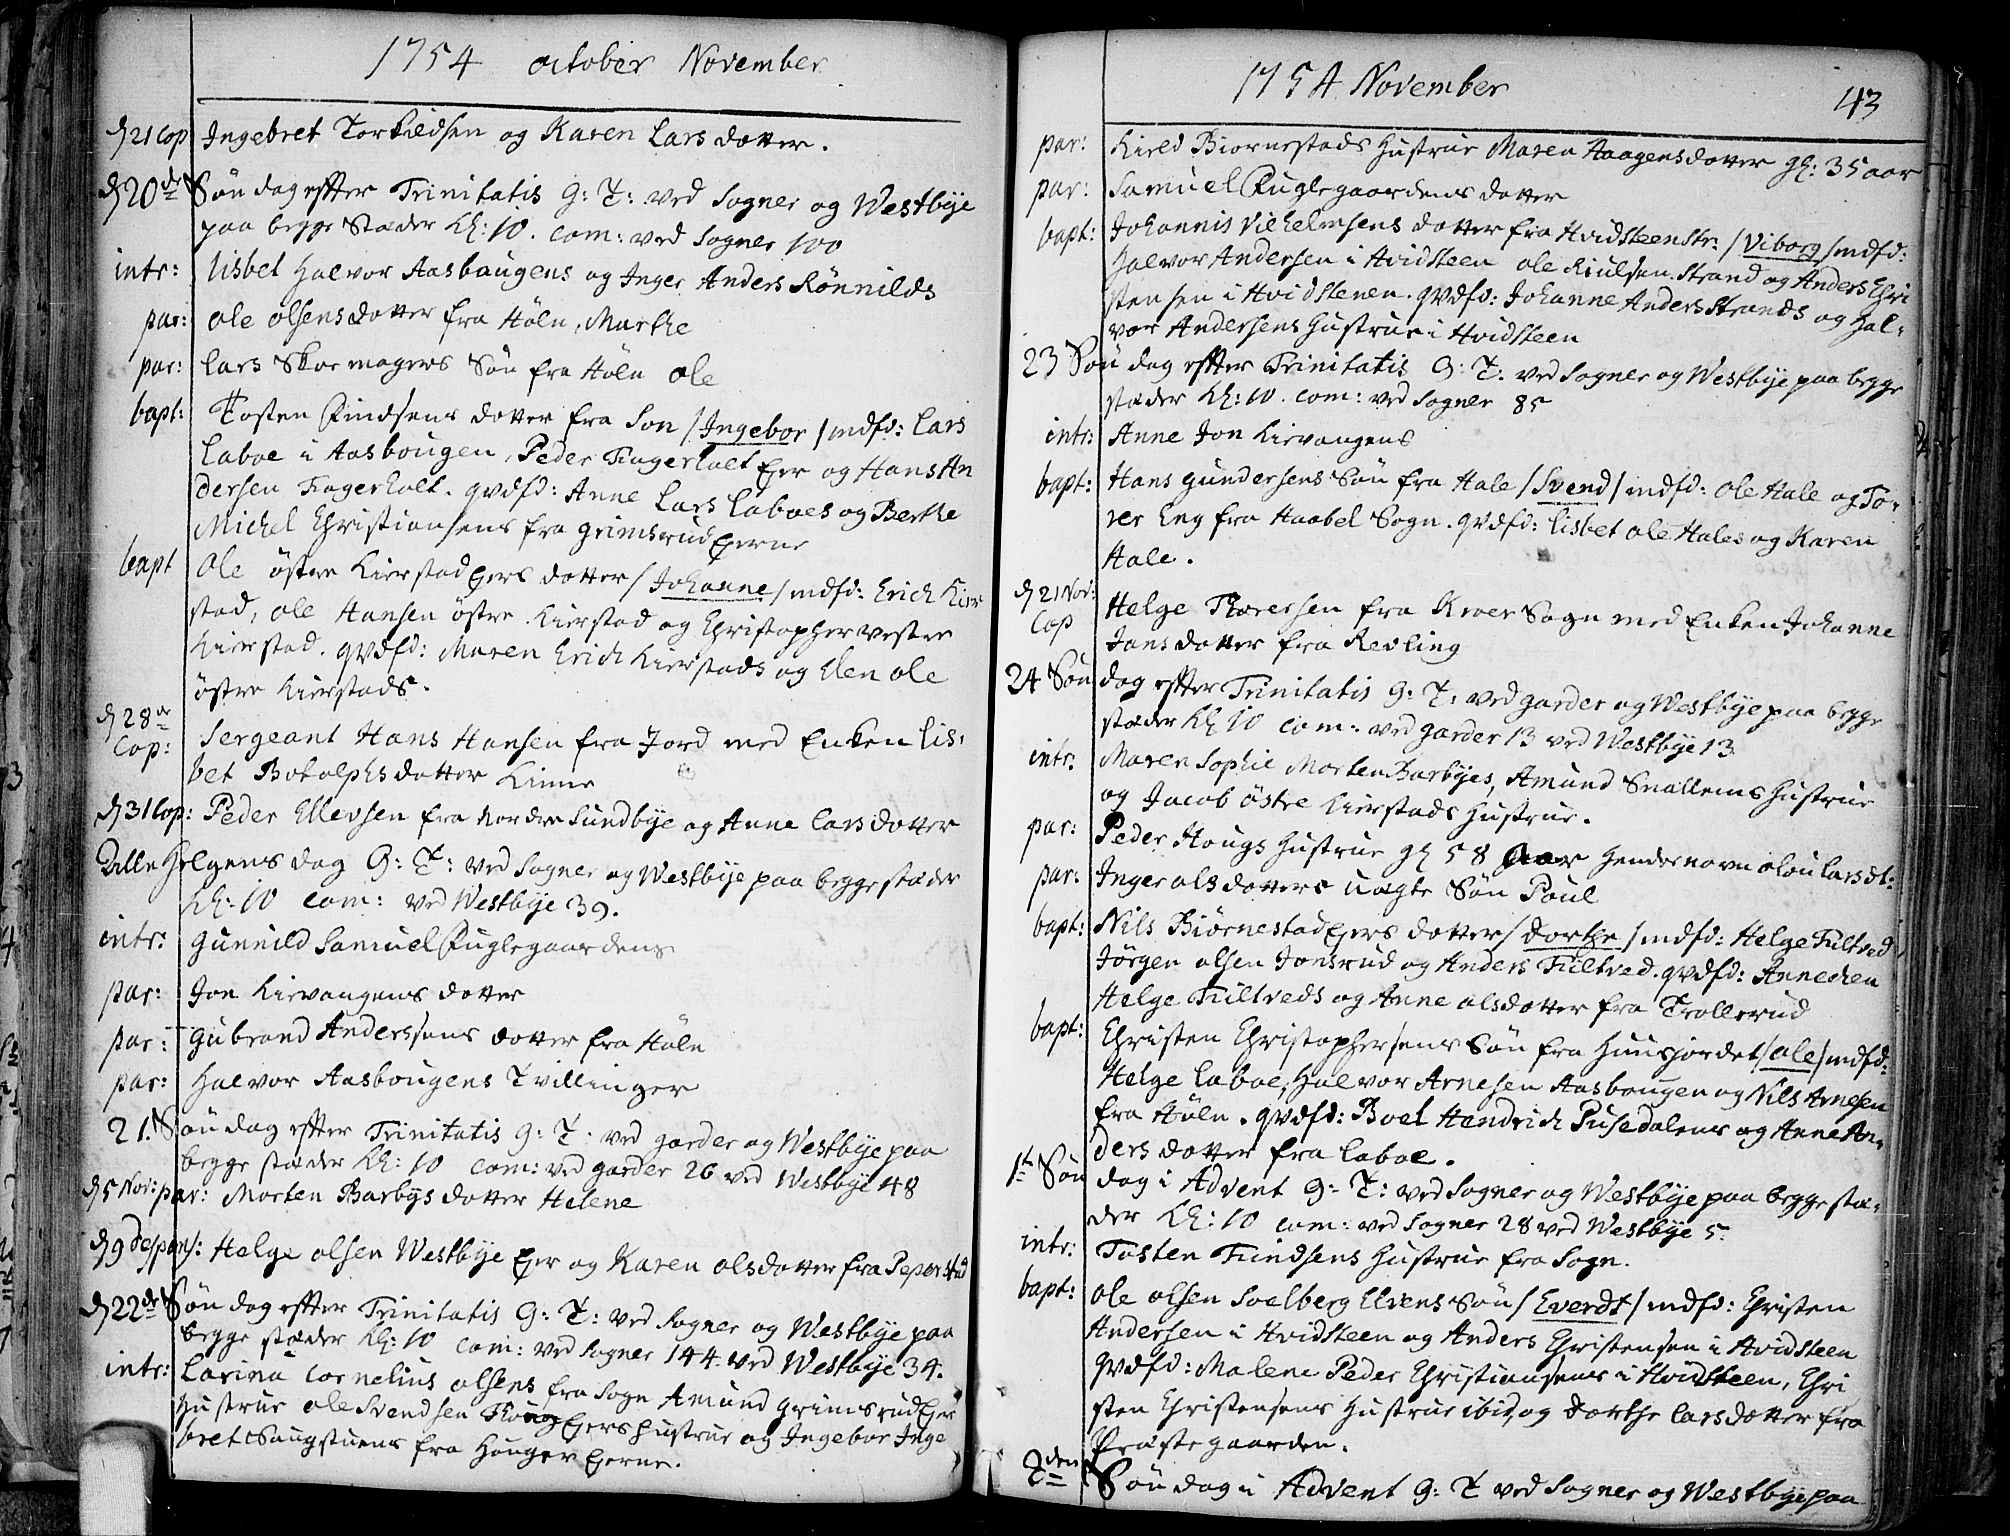 1754 October November
d 21 Cop Ingebret Torkildsen og Karen Lars dotter.
d 20de Søndag effter Trinitatis G: T: ved Sogner og Westbye
paa begge Stæder Kl: 10. com: ved Sogner 100
intr: Lisbet Halvor Aasbougens og Inger Anders Rönnilds
par: Ole Olsens dotter fra Höln, Marthe
par: Lars Skoemagers Søn fra Höln Ole
bapt: Tosten Findsens dotter fra Son /Ingebor/ mdfd: Lars
Laboe i Aasbougen, Peder Fagerholt Ejer og Hans An
dersen Fagerholt. qvdfd: Anne Lars Laboes og Berthe
Michel Christiansens fra Grimsrud Ejerne
bapt Ole östre Kierstad Ejers dotter /Johanne/ mdfd: Erich Kier
stad, Ole Hansen östre Kierstad og Christopher vestre
Kierstad. qvdfd: Maren Erich Kierstads og Elen Ole
östre Kierstads.
d 28de
Cop: Sergeant Hans Hansen fra Jord med Enken Lis-
bet Botolphs dotter Linne
d 31 Cop: Peder Ellevsen fra Nordre Sundbye og Anne Lars dotter
D alle Helgens dag G: T: ved Sogner og Westbye paa begge stæder
Kl: 10 com: ved Westbye 39.
intr: Gunnild Samuel Fuglegaardens
par: Jon Kirvangens dotter
par: Gubrand Anderssens dotter fra Höln
par: Halvor Aasbougens Tvillinger
21. Søndag effter Trinitatis G: T: ved Garder og Westbye paa
begge stæder Kl: 10 com: ved Garder 26 ved Westbye 48
d 5 Nov: par: Morten Barbys dotter Helene
d 9 despons: Helge Olsen Westbye Ejer og Karen Olsdotter fra Peperstad
d 22de Søndag effter Trinitatis G: T: ved Sogner og Westbye paa
begge stæder Kl: 10 com: ved Sogner 144. ved Westbye 34.
intr: Larina Cornelius Olsens fra Sogn Amund Grimsrud Ejer
Hustrue Ole Svendsen Ejers Hustrue og Ingebor Inge
bret Saugstuens fra Hougen Ejerne.
1754 November 43
par: Kield Biørnestads Hustrue Maren Aagens dotter gl: 35 aar
par: Samuel Fuglegaardens dotter
bapt: Johannis Vilhelmsens dotter fra Hvidsteen Str: /Viborg/ mdfd:
Halvor Andersen i Hvidsteen Ole Kiulsen Strand og Anders Chri
stensen i Hvidstenen. qvdfd: Johanne Anders Strands og Hal-
vor Andersens Hustrue i Hvidsteen
23 Søndag effter Trinitatis G: T. ved Sogner og Westbye paa begge
stæder Kl: 10. com: ved Sogner 85
intr: Anne Jon Kirvangens
bapt: Hans Gundersens Søn fra Hale /Svend/ mdfd: Ole Hale og To-
rer Eng fra Haabel Sogn. qvdfd: Lisbet Ole Hales og Karen
Hale.
d 21 Nov:
Cop Helge Thoresen fra Kroer Sogn med Enken Johanne
Jans dotter fra Revling
24 Søndag effter Trinitatis G: T: ved Garder og Westbye paa begge
stæder Kl 10 com: ved Garder 13 ved Westbye 13
intr. Maren Sophie Morten Barbyes, Amund Snallems Hustrue
og Jacob östre Kierstads Hustrue.
par: Peder Hougs Hustrue gl 58 Aar Hendes navn Olou Larsdt:
par: Inger Olsdotters uægte Søn Poul
bapt: Nils Biørnestad Ejers dotter /Dorthe/ mdfd: Helge Fultved
Jörgen Olsen Jonsrud og Anders Fultved. qvdfd: Annechen
Helge Fultveds og Anne Olsdotter fra Trollerud
bapt: Christen Christophersens Søn fra Huusjordet /Ole/ mdfd:
Helge Laboe, Halvor Arnesen Aasbougen og Nils Arnesen
fra Höln. qvdfd: Boel Hendrich Pusedalens og Anne An-
ders dotter fra Laboe.
1te Søndag i Advent G: T: ved Sogner og Westbye paa begge stæ-
der Kl: 10 com: ved Sogner 28 ved Westbye 5.
intr: Tosten Findsens Hustrue fra Sogn.
bapt: Ole Olsen Soelberg Elvens Søn /Everdt/ mdfd: Christen
Andersen i Hvidsteen og Anders Christensen i Hvidsteen
qvdfd: Malene Peder Christiansens i Hvidsteen, Chri
sten Christensens Hustrue ibid, og Dorthe Larsdotter fra
Præstegaarden.
2den Søndag i Advent G: T ved Sogner og Westbye paa